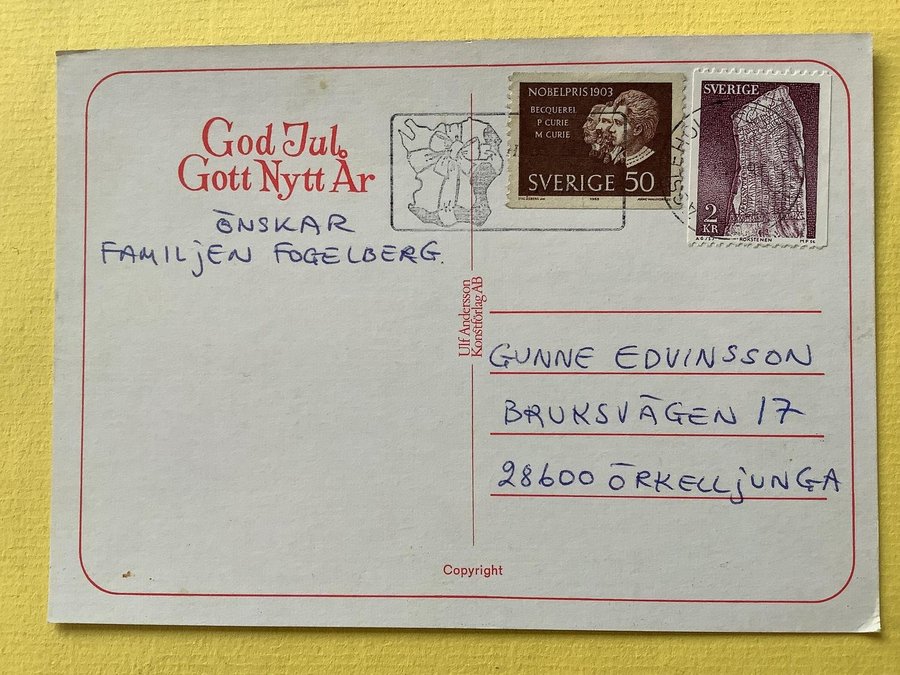 God Jul,
Gott Nytt År
ÖNSKAR
FAMILJEN FOGELBERG.
NOBELPRIS 1903
BECQUEREL
P CURIE
M CURIE
SVERIGE 50
1963
SVERIGE
2
KR
RÖKSTENEN
Ulf Andersson
Konstförlag AB
GUNNE EDVINSSON
BRUKSVÄGEN 17
28600 ÖRKELLJUNGA
Copyright